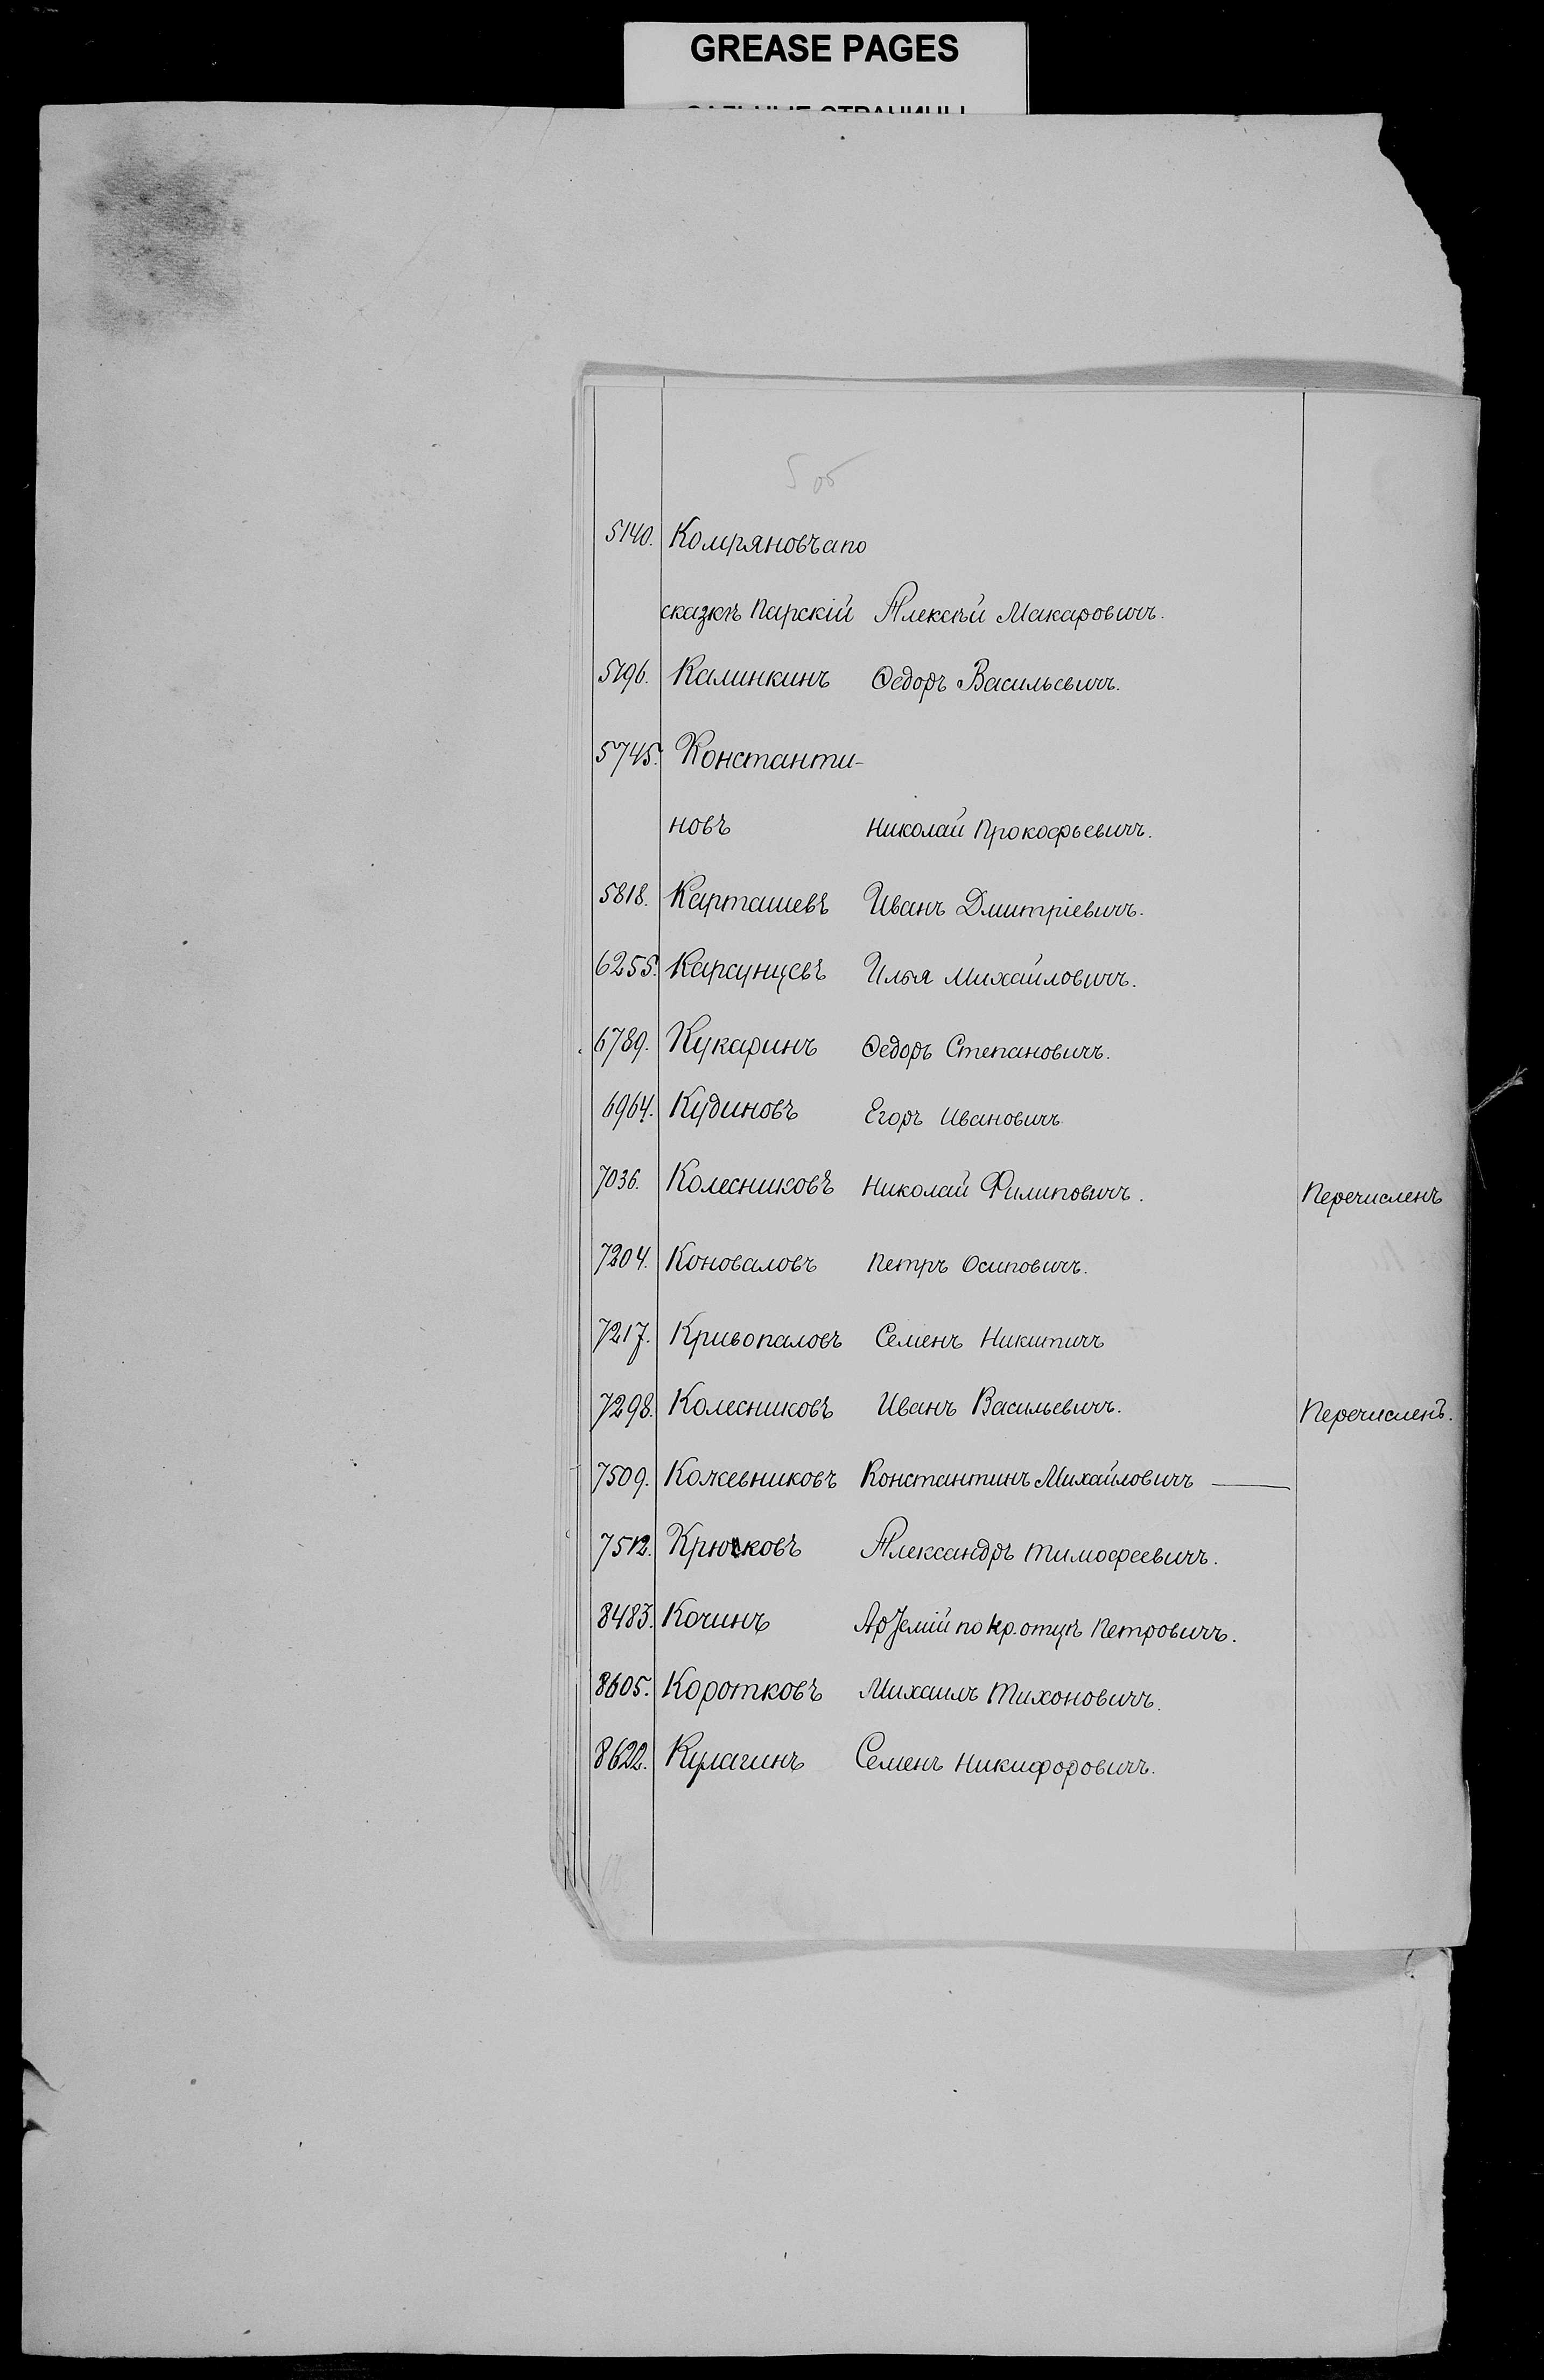 GREASE PAGES
САЛЬНЫЕ СТРАНИЦЫ
5 об
5140. Комряновъ а по
сказкѣ Парскій Алексѣй Макаровичъ.
5196. Калинкинъ Ѳедоръ Васильевичъ.
5745. Константи-
новъ Николай Прокофьевичъ.
5818. Карташевъ Иванъ Дмитріевичъ.
6255. Карсунцевъ Илья Михайловичъ.
6789. Кукаринъ Ѳедоръ Степановичъ.
6964. Кудиновъ Егоръ Ивановичъ
7036. Колесниковъ Николай Филиповичъ. Перечисленъ
7204. Коноваловъ Петръ Осиповичъ.
7217. Кривопаловъ Семенъ Никитичъ
7298. Колесниковъ Иванъ Васильевичъ. Перечисленъ.
7509. Кожевниковъ Константинъ Михайловичъ —
7512. Крючковъ Александръ Тимофеевичъ.
8483. Кочинъ Артемій по кр. отцѣ Петровичъ.
8605. Коротковъ Михаилъ Тихоновичъ.
8622. Кулагинъ Семенъ Никифоровичъ.